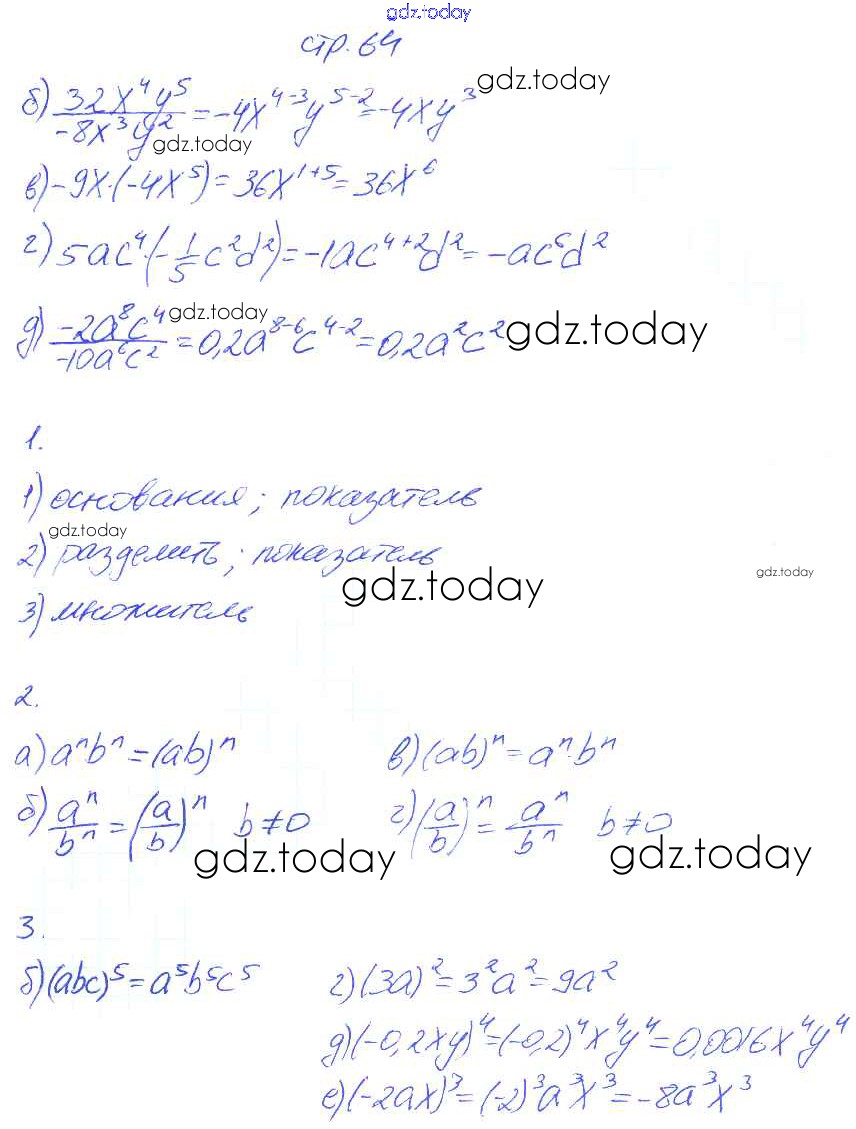 gdz.today
стр. 64
б) 32x⁴y⁵/-8x³y² = -4x⁴⁻³y⁵⁻² = -4xy³ gdz.today
gdz.today
в) -9x·(-4x⁵) = 36x¹⁺⁵ = 36x⁶
г) 5ac⁴·(-1/5c²d²) = -1ac⁴⁺²d² = -ac⁶d²
д) -2a⁸c⁴/-10a⁶c² = 0,2a⁸⁻⁶c⁴⁻² = 0,2a²c² gdz.today
gdz.today
1.
1) основания; показатель
gdz.today
2) разделить; показатель
gdz.today gdz.today
3) множитель
2.
а) aⁿbⁿ = (ab)ⁿ в) (ab)ⁿ = aⁿ·bⁿ
б) aⁿ/bⁿ = (a/b)ⁿ b≠0 г) (a/b)ⁿ = aⁿ/bⁿ b≠0
gdz.today gdz.today
3.
б) (abc)⁵ = a⁵b⁵c⁵ г) (3a)² = 3²a² = 9a²
д) (-0,2xy)⁴ = (-0,2)⁴x⁴y⁴ = 0,0016x⁴y⁴
е) (-2ax)³ = (-2)³a³x³ = -8a³x³